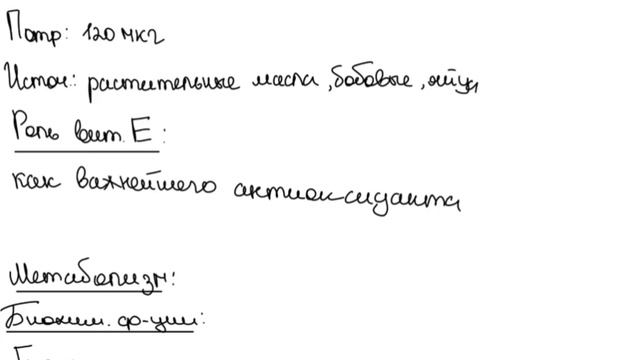 Потр: 120 мкг
Источ.: растительные масла, бобовые, яйца
Роль вит. Е:
как важнейшего антиоксиданта
Метаболизм:
Биохим. ф-ции: